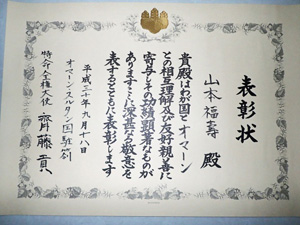 表彰状
山本福寿 殿
貴殿はわが国とオマーン
との相互理解及び友好親善に
寄与しその功績顕著なものが
ありますここに深甚なる敬意を
表するとともに表彰します
平成三十年九月十八日
オマーン・スルタン国駐箚
特命全権大使 齊藤 貢